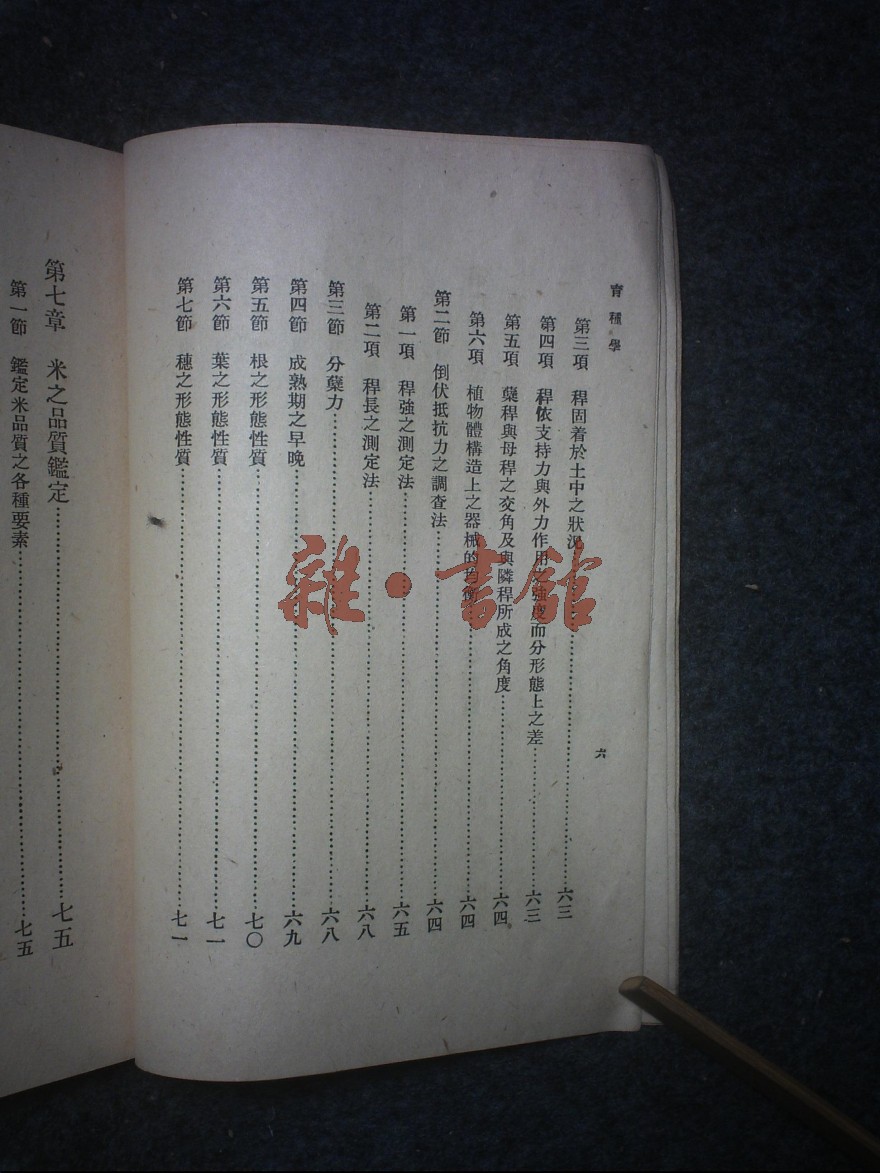 育種學
六
第三項 稈固着於土中之狀況……六三
第四項 稈依支持力與外力作用之強度而分形態上之差……六三
第五項 蘖稈與母稈之交角及與隣稈所成之角度……六四
第六項 植物體構造上之器械的均衡……六四
第二節 倒伏抵抗力之調查法……六四
第一項 稈強之測定法……六五
第二項 稈長之測定法……六八
第三節 分蘖力……六八
第四節 成熟期之早晚……六九
第五節 根之形態性質……七〇
第六節 葉之形態性質……七一
第七節 穗之形態性質……七一
第七章 米之品質鑑定……七五
第一節 鑑定米品質之各種要素……七五
雜·書館